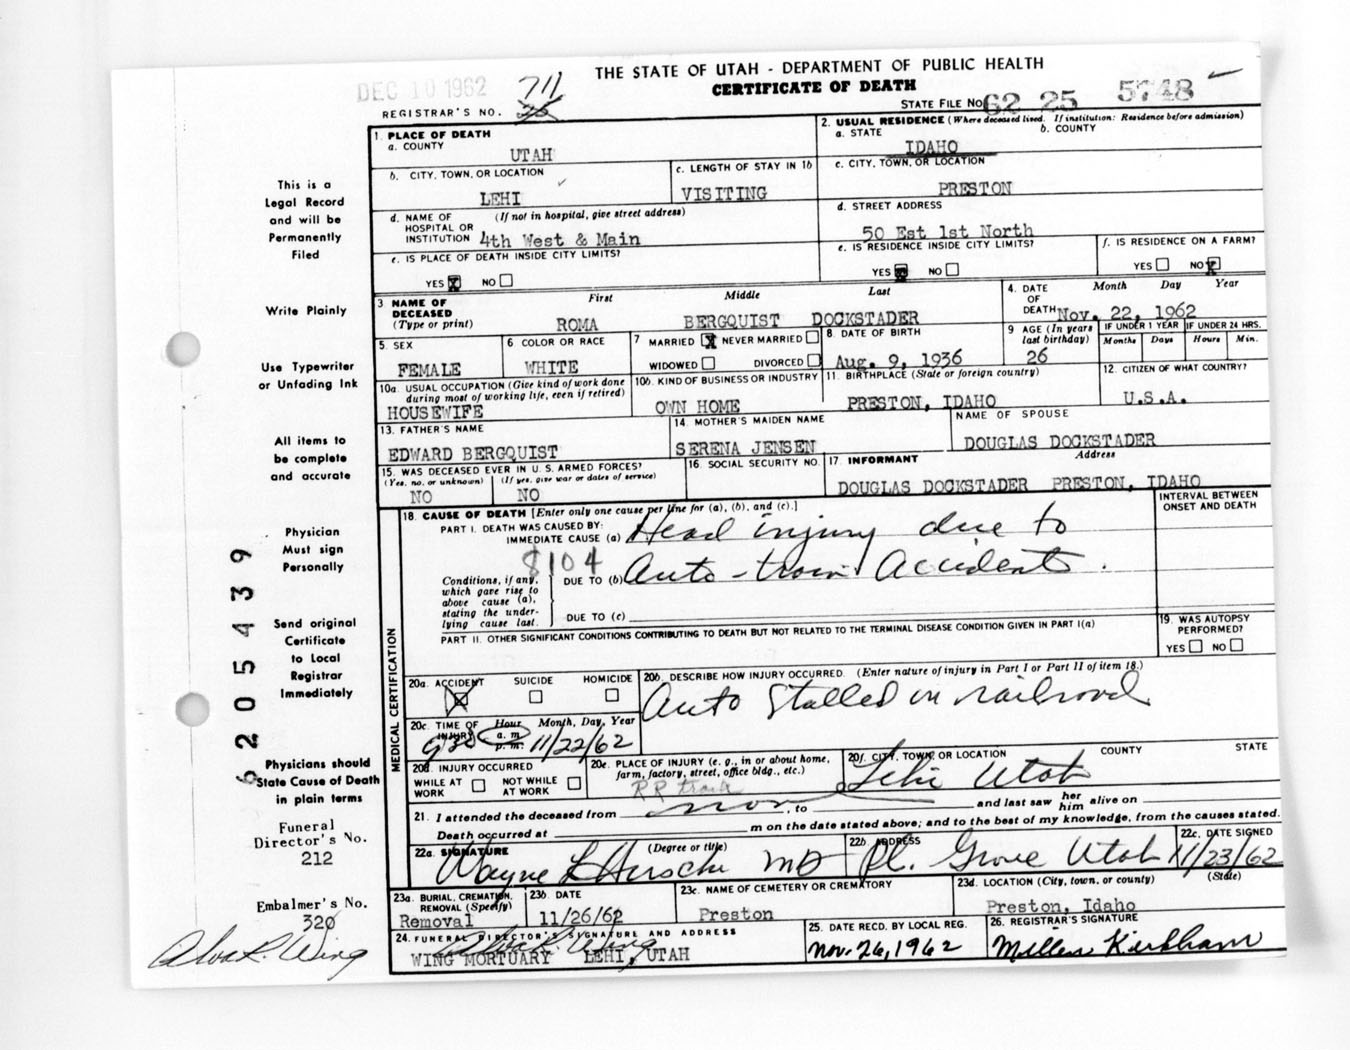 DEC 10 1962
711
THE STATE OF UTAH - DEPARTMENT OF PUBLIC HEALTH
CERTIFICATE OF DEATH
REGISTRAR'S NO.
STATE FILE NO. 62 25 5748
1. PLACE OF DEATH
a. COUNTY
UTAH
2. USUAL RESIDENCE (Where deceased lived. If institution: Residence before admission)
a. STATE
b. COUNTY
IDAHO
b. CITY, TOWN, OR LOCATION
LEHI
c. LENGTH OF STAY IN 1b
VISITING
c. CITY, TOWN, OR LOCATION
PRESTON
d. NAME OF HOSPITAL OR INSTITUTION
(If not in hospital, give street address)
4th West & Main
d. STREET ADDRESS
50 Est 1st North
e. IS PLACE OF DEATH INSIDE CITY LIMITS?
YES X NO
e. IS RESIDENCE INSIDE CITY LIMITS?
YES X NO
f. IS RESIDENCE ON A FARM?
YES NO X
3 NAME OF DECEASED
(Type or print)
First Middle Last
ROMA BERGQUIST DOCKSTADER
4. DATE OF DEATH
Month Day Year
Nov. 22, 1962
5. SEX
FEMALE
6 COLOR OR RACE
WHITE
7 MARRIED X NEVER MARRIED
WIDOWED DIVORCED
8. DATE OF BIRTH
Aug. 9, 1936
9 AGE (In years last birthday)
26
IF UNDER 1 YEAR
Months Days
IF UNDER 24 HRS.
Hours Min.
10a. USUAL OCCUPATION (Give kind of work done during most of working life, even if retired)
HOUSEWIFE
10b. KIND OF BUSINESS OR INDUSTRY
OWN HOME
11. BIRTHPLACE (State or foreign country)
PRESTON, IDAHO
12. CITIZEN OF WHAT COUNTRY?
U.S.A.
13. FATHER'S NAME
EDWARD BERGQUIST
14. MOTHER'S MAIDEN NAME
SERENA JENSEN
NAME OF SPOUSE
DOUGLAS DOCKSTADER
15. WAS DECEASED EVER IN U.S. ARMED FORCES?
(Yes, no, or unknown) (If yes, give war or dates of service)
NO NO
16. SOCIAL SECURITY NO.
17. INFORMANT Address
DOUGLAS DOCKSTADER PRESTON, IDAHO
MEDICAL CERTIFICATION
18. CAUSE OF DEATH [Enter only one cause per line for (a), (b), and (c).]
INTERVAL BETWEEN ONSET AND DEATH
PART I. DEATH WAS CAUSED BY:
IMMEDIATE CAUSE (a) Head injury due to
8104
Conditions, if any, which gave rise to above cause (a), stating the underlying cause last.
DUE TO (b) Auto-train Accident.
DUE TO (c)
PART II. OTHER SIGNIFICANT CONDITIONS CONTRIBUTING TO DEATH BUT NOT RELATED TO THE TERMINAL DISEASE CONDITION GIVEN IN PART I(a)
19. WAS AUTOPSY PERFORMED?
YES NO
20a. ACCIDENT SUICIDE HOMICIDE
X
20b. DESCRIBE HOW INJURY OCCURRED. (Enter nature of injury in Part I or Part II of item 18.)
Auto Stalled on railroad
20c. TIME OF INJURY
Hour Month, Day, Year
a. m.
p. m.
930 11/22/62
20d. INJURY OCCURRED
WHILE AT WORK NOT WHILE AT WORK
20e. PLACE OF INJURY (e. g., in or about home, farm, factory, street, office bldg., etc.)
RR track
20f. CITY, TOWN, OR LOCATION COUNTY STATE
Lehi Utah
21. I attended the deceased from , to and last saw her him alive on
Death occurred at m on the date stated above; and to the best of my knowledge, from the causes stated.
22a. SIGNATURE (Degree or title)
Wayne L MD
22b. ADDRESS
Pl. Grove Utah
22c. DATE SIGNED
11/23/62
23a. BURIAL, CREMATION, REMOVAL (Specify)
Removal
23b. DATE
11/26/62
23c. NAME OF CEMETERY OR CREMATORY
Preston
23d. LOCATION (City, town, or county) (State)
Preston, Idaho
24. FUNERAL DIRECTOR'S SIGNATURE AND ADDRESS
Alva R. Wing
WING MORTUARY LEHI, UTAH
25. DATE RECD. BY LOCAL REG.
Nov. 26, 1962
26. REGISTRAR'S SIGNATURE
Kirkham
This is a
Legal Record
and will be
Permanently
Filed
Write Plainly
Use Typewriter
or Unfading Ink
All items to
be complete
and accurate
Physician
Must sign
Personally
Send original
Certificate
to Local
Registrar
Immediately
Physicians should
State Cause of Death
in plain terms
Funeral
Director's No.
212
Embalmer's No.
320
Alva R. Wing
6205439